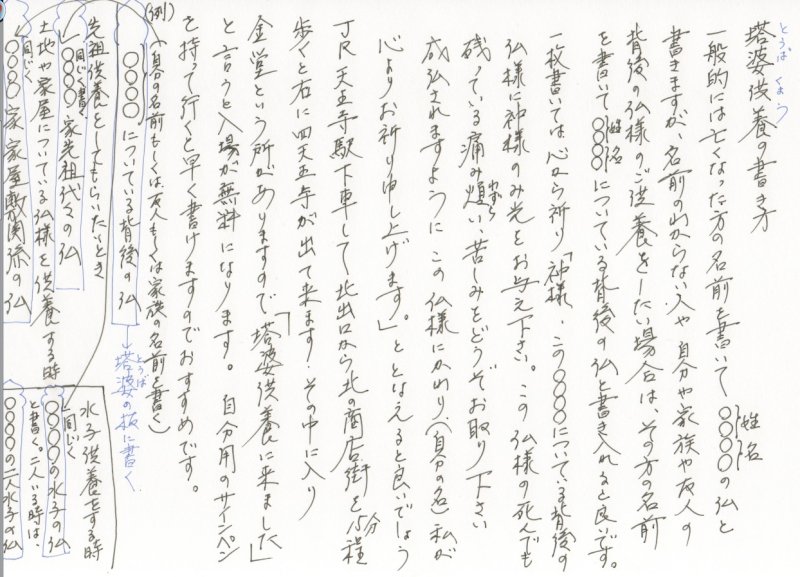 とうば くよう
塔婆供養の書き方
一般的には亡くなった方の名前を書いて 〇〇〇〇の仏と
姓名
書きますが、名前のわからない人や自分や家族や友人の
背後の仏様のご供養をしたい場合は、その方の名前
を書いて〇〇〇〇についている背後の仏と書き入れると良いです。
姓名
一枚書いては心から祈り「神様、この〇〇〇〇についている背後の
仏様に神様のみ光をお与え下さい。この仏様の死んでも
残っている痛み、煩い、苦しみをどうぞお取り下さい
わずら
成仏されますように この仏様にかわり、(自分の名)私が
心よりお祈り申し上げます。」ととなえると良いでしょう
JR天王寺駅下車して北出口から北の商店街を15分程
歩くと右に四天王寺が出て来ます。その中に入り
金堂という所がありますので「塔婆供養に来ました」
と言うと入場が無料になります。 自分用のサインペン
を持って行くと早く書けますのでおすすめです。
(例)
(自分の名前もしくは友人もしくは家族の名前を書く)
〇〇〇〇 についている背後の仏
→塔婆の板に書く
とうば
先祖供養をしてもらいたいとき
同じく書く
〇〇〇〇家先祖代々の仏
土地や家屋についている仏様を供養する時
同じく
〇〇〇〇家 家屋敷関係の仏
水子供養をする時
同じく
〇〇〇〇の水子の仏
と書く。二人いる時は、
〇〇〇〇の二人水子の仏